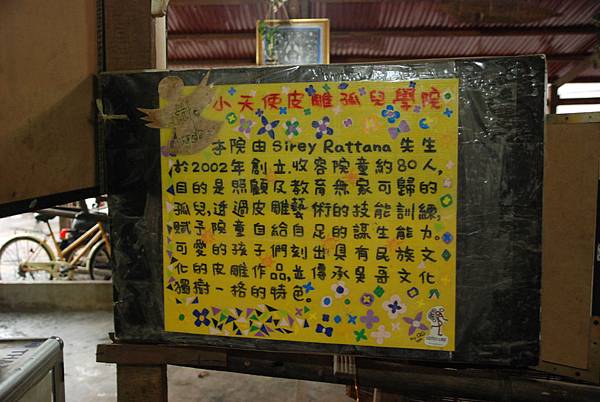 小天使皮雕孤兒學院
本院由Sirey Rattana先生
於2002年創立.收容院童約80人,
目的是照顧及教育無家可歸的
孤兒,透過皮雕藝術的技能訓練,
賦予院童自給自足的謀生能力。
可愛的孩子們刻出具有民族文
化的皮雕作品,並傳承吳哥文化
獨樹一格的特色。